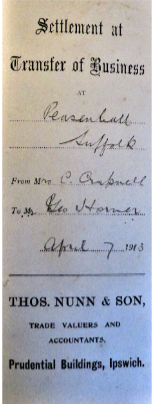 Settlement at
Transfer of Business
AT
Peasenhall
Suffolk
From Mrs C.
To Mr Geo
April 7 1913
THOS. NUNN & SON,
TRADE VALUERS AND
ACCOUNTANTS,
Prudential Buildings, Ipswich.